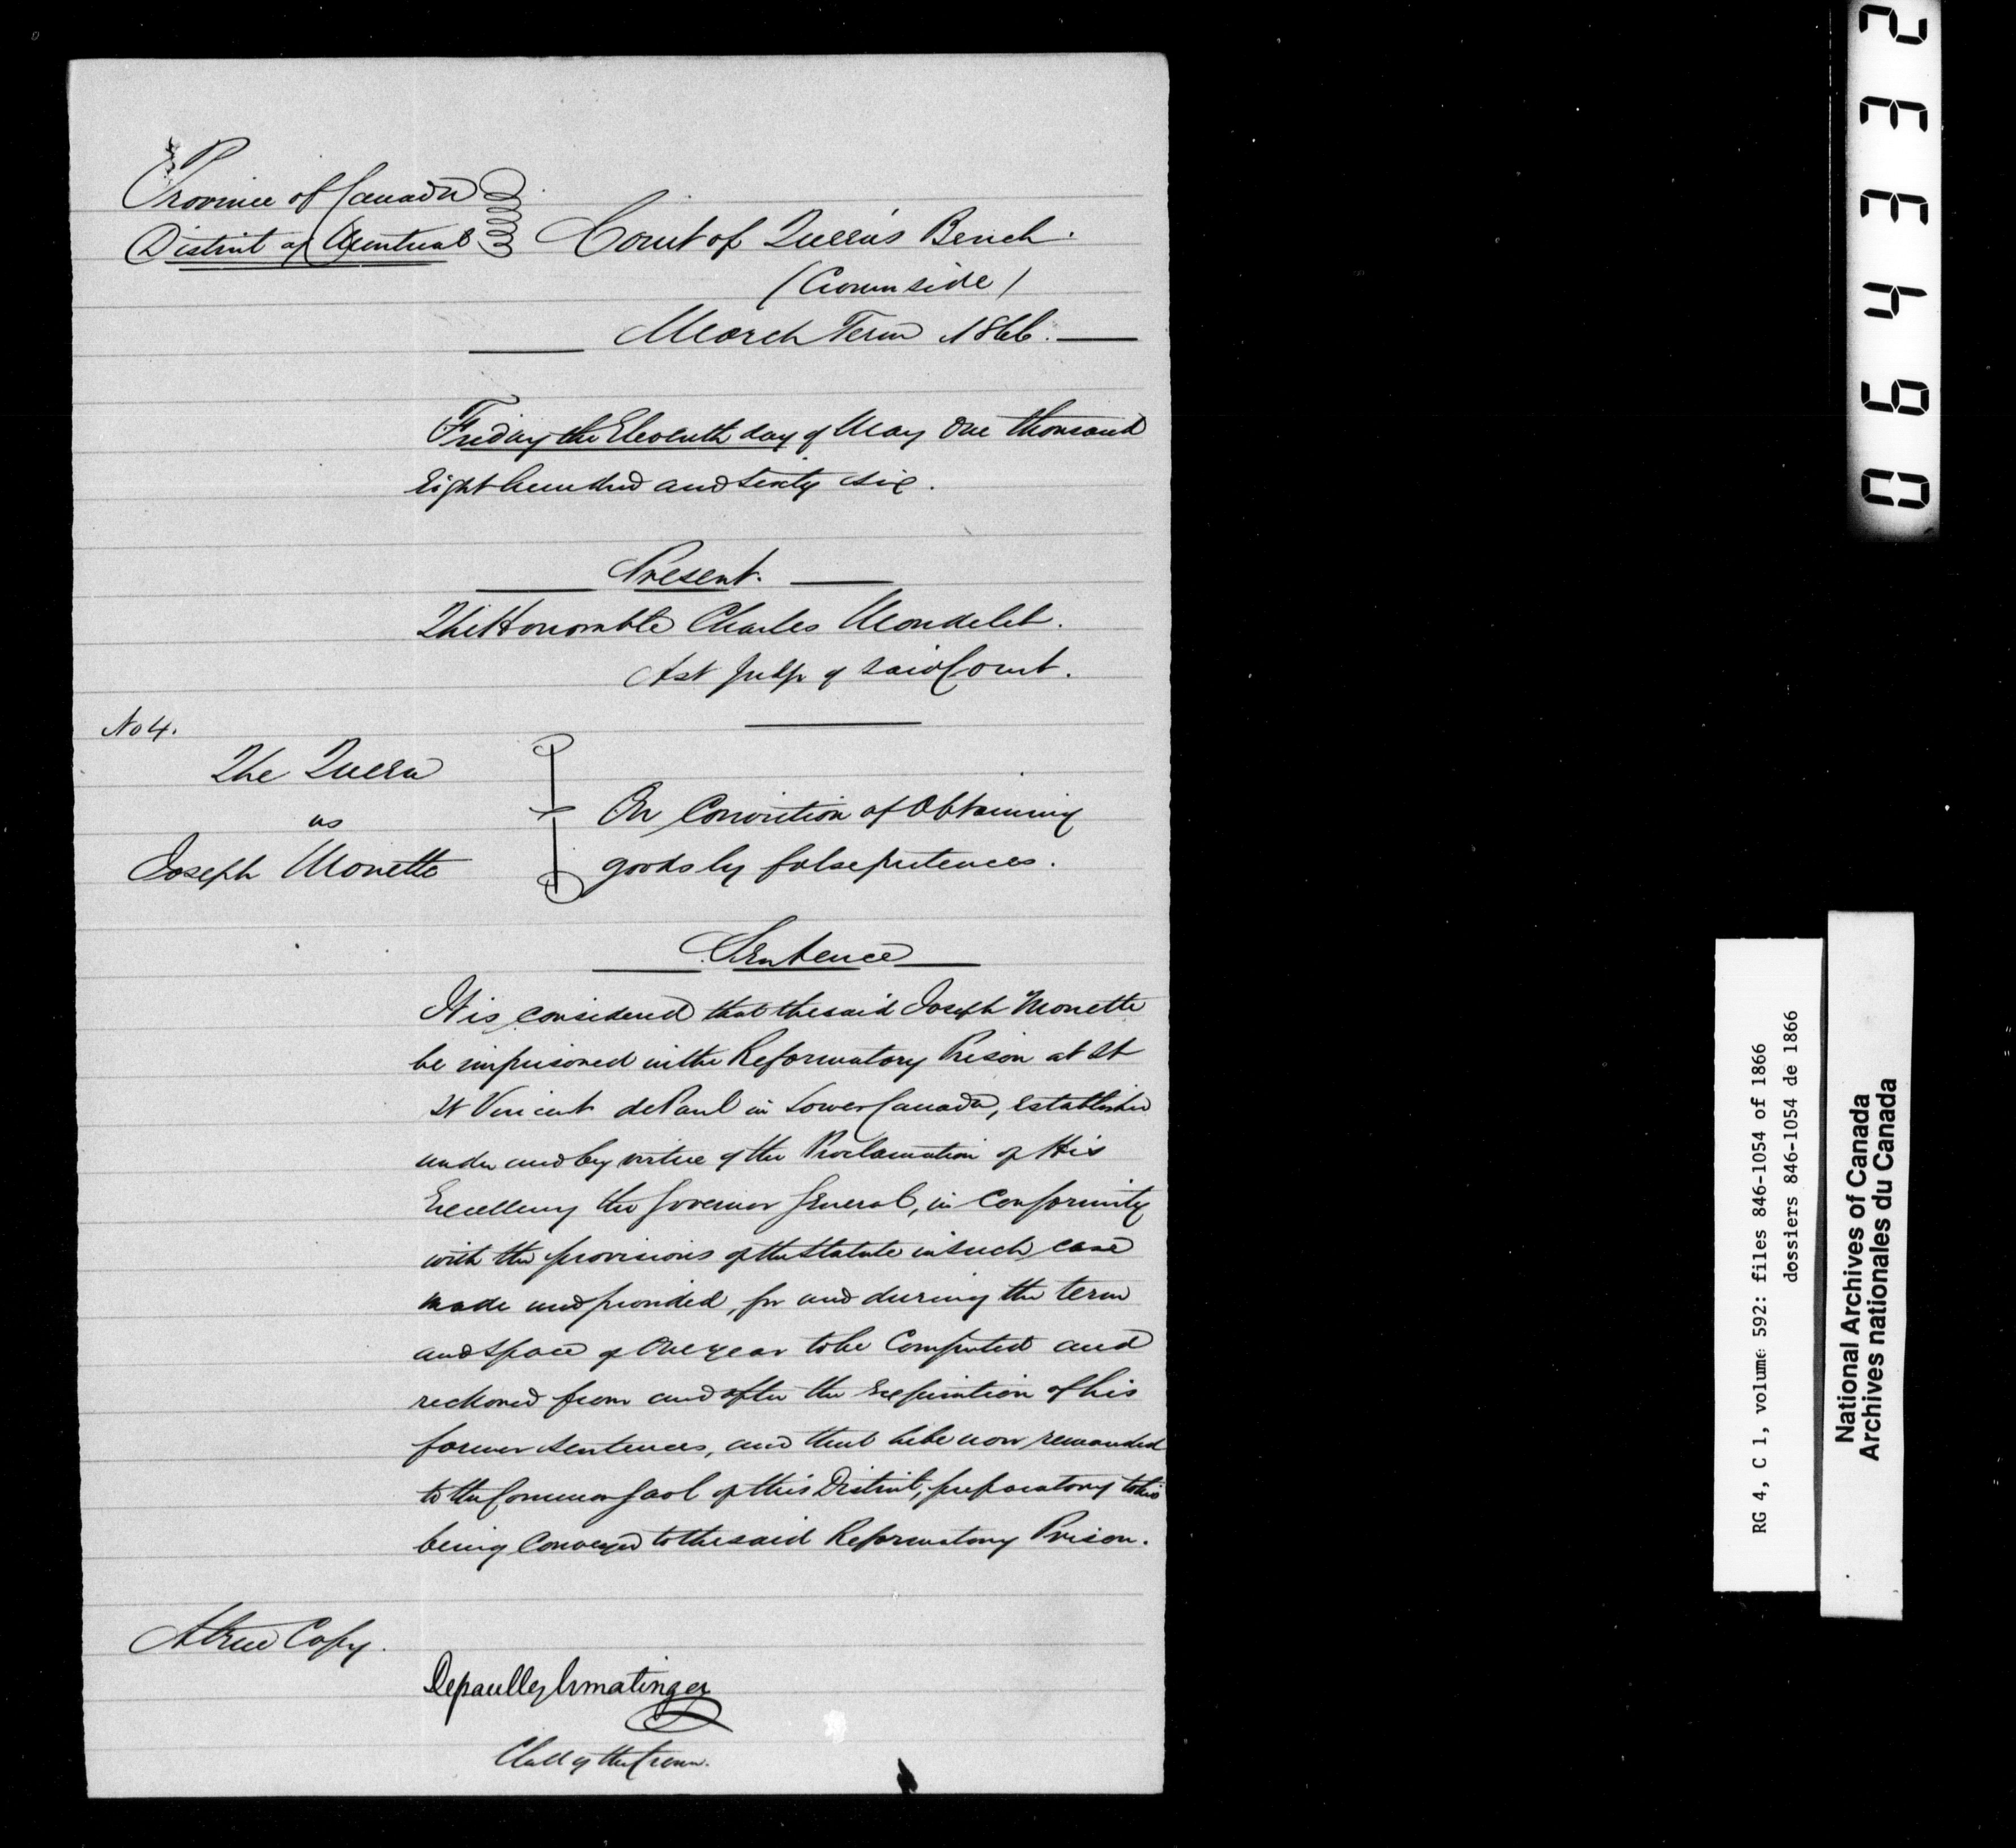 Province of Canada
District of Montreal
Court of Queen's Bench.
(Crown side)
March Term 1866.
Friday the Eleventh day of May One thousand
Eight hundred and sixty six.
Present.
The Honorable Charles Mondelet.
Ast Judge of said Court.
No 4.
The Queen
vs
Joseph Monette
On Conviction of Obtaining
goods by false pretences.
Sentence
It is considered that the said Joseph Monette
be imprisoned in the Reformatory Prison at St
St Vincent de Paul in Lower Canada, established
under and by virtue of the Proclamation of His
Excellency the Governor General, in Conformity
with the provisions of the Statute in such case
made and provided, for and during the term
and space of One year to be Computed and
reckoned from and after the expiration of his
former sentences, and that he be now remanded
to the Common Gaol of this District, preparatory to his
being Conveyed to the said Reformatory Prison.
A true Copy.
Clerk of the Crown.
094332
RG 4, C 1, volume 592: files 846-1054 of 1866
dossiers 846-1054 de 1866
National Archives of Canada
Archives nationales du Canada